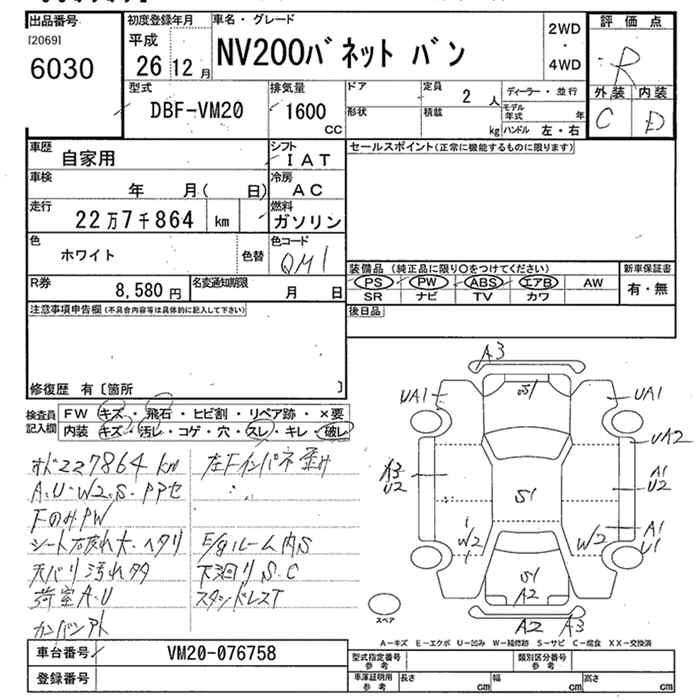 出品番号
[2069]
6030
初度登録年月
平成
26 12 月
車名・グレード
NV200バネット バン
2WD
・
4WD
評価点
R
外装 内装
C D
型式
DBF-VM20
排気量
1600
CC
ドア
形状
定員
2 人
積載
kg
ディーラー・並行
モデル年式 年
ハンドル 左・右
車歴
自家用
シフト
I A T
セールスポイント(正常に機能するものに限ります)
車検
年 月( 日)
冷房
A C
走行
22 万 7 千 864 km
燃料
ガソリン
色
ホワイト
色替
色コード
QM1
装備品 (純正品に限り○をつけてください)
PS PW ABS エアB AW
SR ナビ TV カワ
新車保証書
有・無
R券
8,580 円
名変通知期限
月 日
後日品
注意事項申告欄 (不具合内容等は具体的に記入して下さい)
修復歴 有〔箇所 〕
検査員記入欄
FW キズ・飛石・ヒビ割・リペア跡・×要
内装 キズ・汚レ・コゲ・穴・スレ・キレ・破レ
オド227864 km
A・U・W2・S・PPセ
Fのみ PW
シート右破れ大・ヘタリ
天バリ汚れタタ
荷室A・U
カンバンアト
左Fインパネ歪み
E/gルーム内S
下廻りS・C
スタッドレスT
A3
S1
UA1
UA1
UA2
A3
U2
S1
A1
U2
A1
U1
W2
W2
S1
A2
A2 A3
スペア
A－キズ E－エクボ U－凹み W－補修跡 S－サビ C－腐食 XX－交換済
車台番号
VM20-076758
登録番号
型式指定番号
参考
類別区分番号
参考
車庫証明用
参考
長さ cm
幅 cm
高さ cm